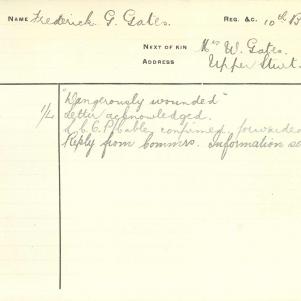 NAME Frederick G. Gates. REG. &C. 10th B
NEXT OF KIN Mrs W. Gates.
ADDRESS Upper Sturt.
1/2 "Dangerously wounded"
Letter acknowledged.
Cable confirmed forwarded
Reply from Commrs. Information se